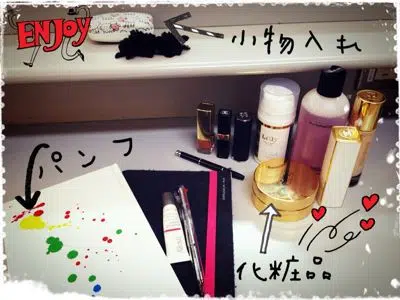 ENJOY
小物入れ
パンフ
化粧品